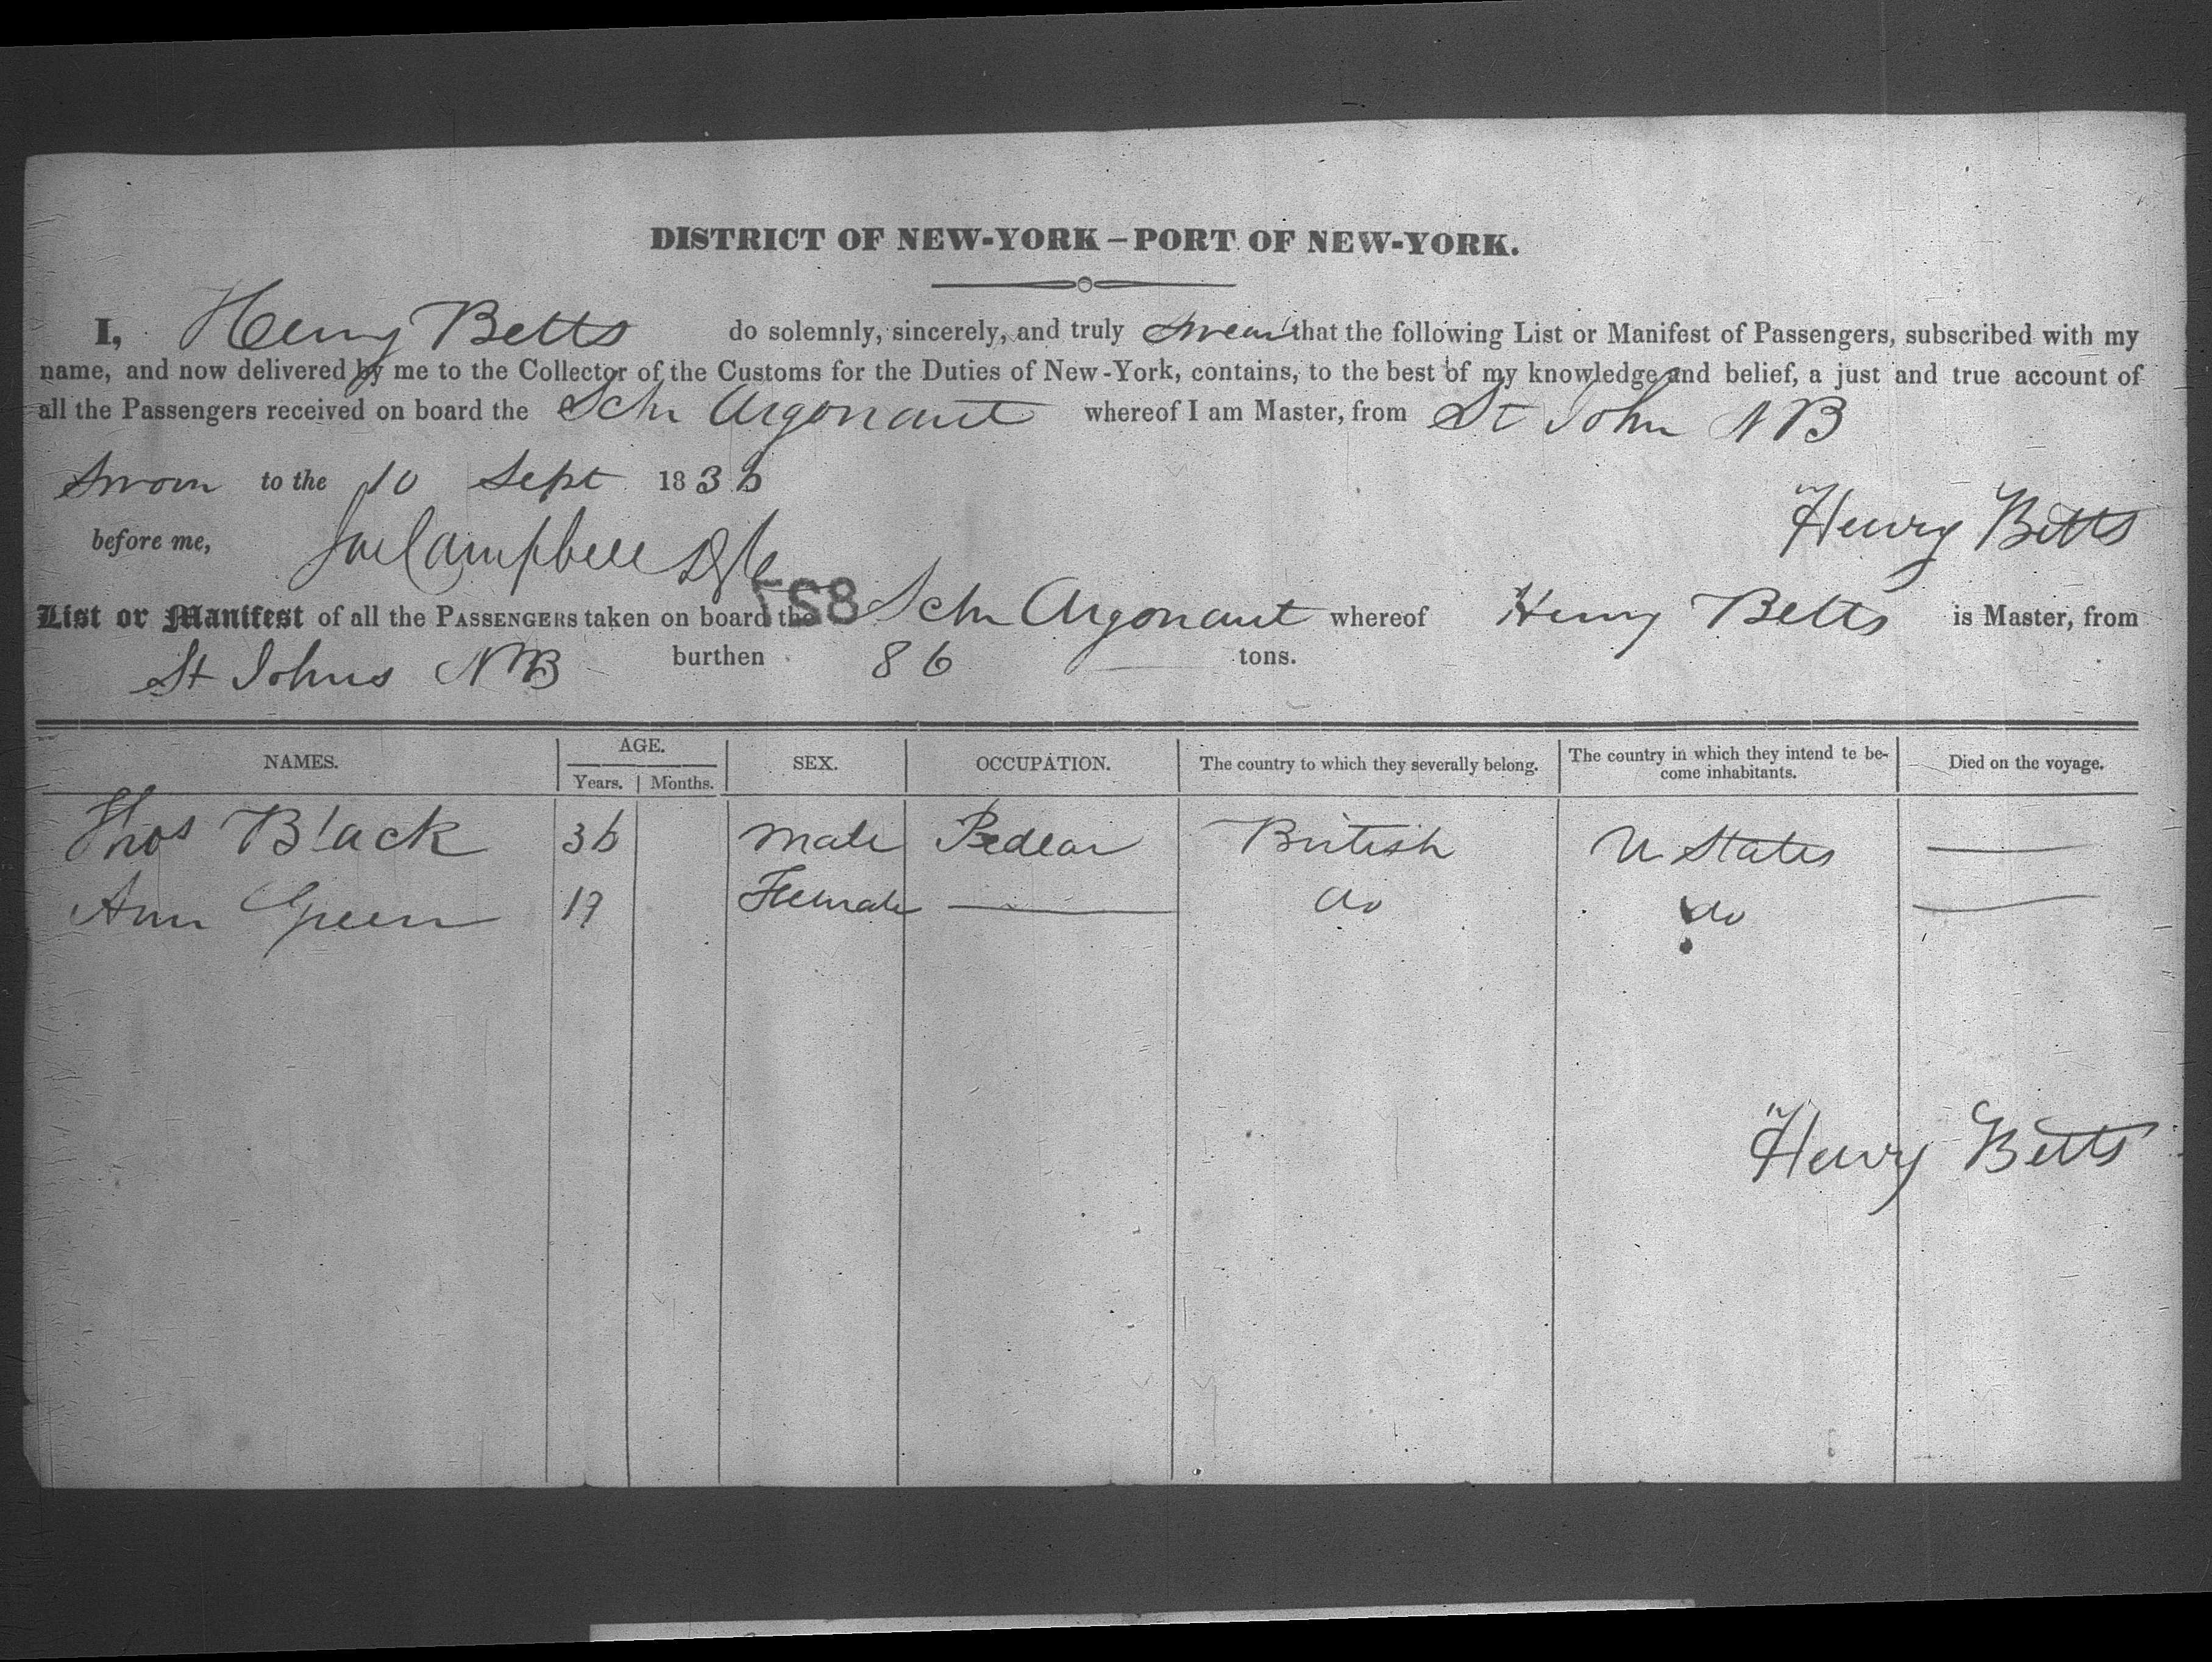 DISTRICT OF NEW-YORK – PORT OF NEW-YORK.
I, Henry Betts do solemnly, sincerely, and truly swear that the following List or Manifest of Passengers, subscribed with my
name, and now delivered by me to the Collector of the Customs for the Duties of New-York, contains, to the best of my knowledge and belief, a just and true account of
all the Passengers received on board the Schr Argonaut whereof I am Master, from St John NB
Sworn to the 10 Sept 1836
before me, Campbell Henry Betts
827
List or Manifest of all the PASSENGERS taken on board the Schr Argonaut whereof Henry Betts is Master, from
St Johns NB burthen 86 tons.
NAMES. AGE. Years. Months. SEX. OCCUPATION. The country to which they severally belong. The country in which they intend te become inhabitants. Died on the voyage.
Thos Black 36 Male Pedlar British U States —
Ann Green 19 Female — do do —
Henry Betts